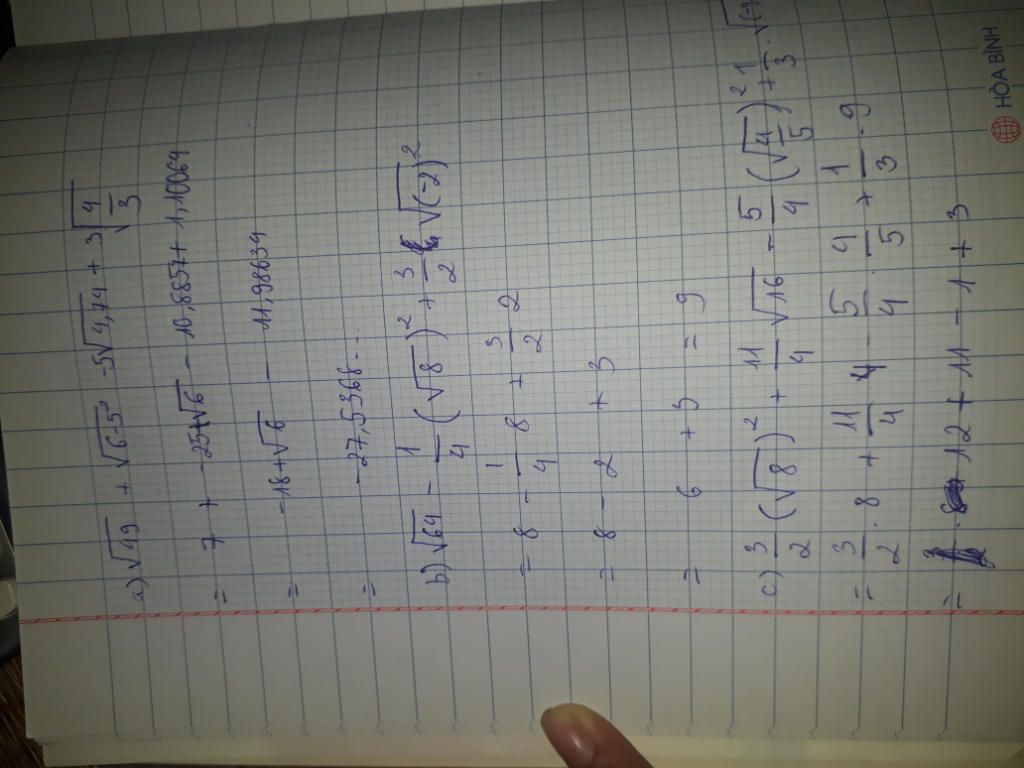 a) √49 + √6-5² -5√4,74 + 3√4/3
= 7 + -25+√6 - 10,8857 + 1,10064
= -18+√6 - 11,98634
= -27,5368...
b) √64 - 1/4 (√8)² + 3/2 √(-2)²
= 8 - 1/4 8 + 3/2 2
= 8 - 2 + 3
= 6 + 3 = 9
c) 3/2 (√8)² + 11/4 √16 - 5/4 (√4/5)² + 1/3 . √(-9
= 3/2 . 8 + 11/4 4 - 5/4 . 4/5 + 1/3 . 9
= 12 + 11 - 1 + 3
HÒA BÌNH